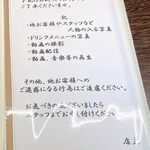 ご了承くださいませ。
記
・他お客様やスタッフなど
人物の入る写真
・ドリンクメニューの写真
・動画の撮影
・動画配信
・動画、音楽等の再生
その他、他お客様への
ご迷惑になる行為はご遠慮ください。
お気づきの点ございましたら
スタッフまでお申し付けください
店主